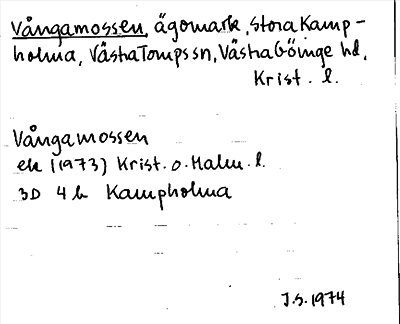 Vångamossen, ägomark, Stora Kamp-
holma, Västra Torups sn, Västra Göinge hd,
Krist. l.
Vångamossen
ek (1973) Krist. o. Malm. l.
3D 4 h Kampholma
J.S. 1974